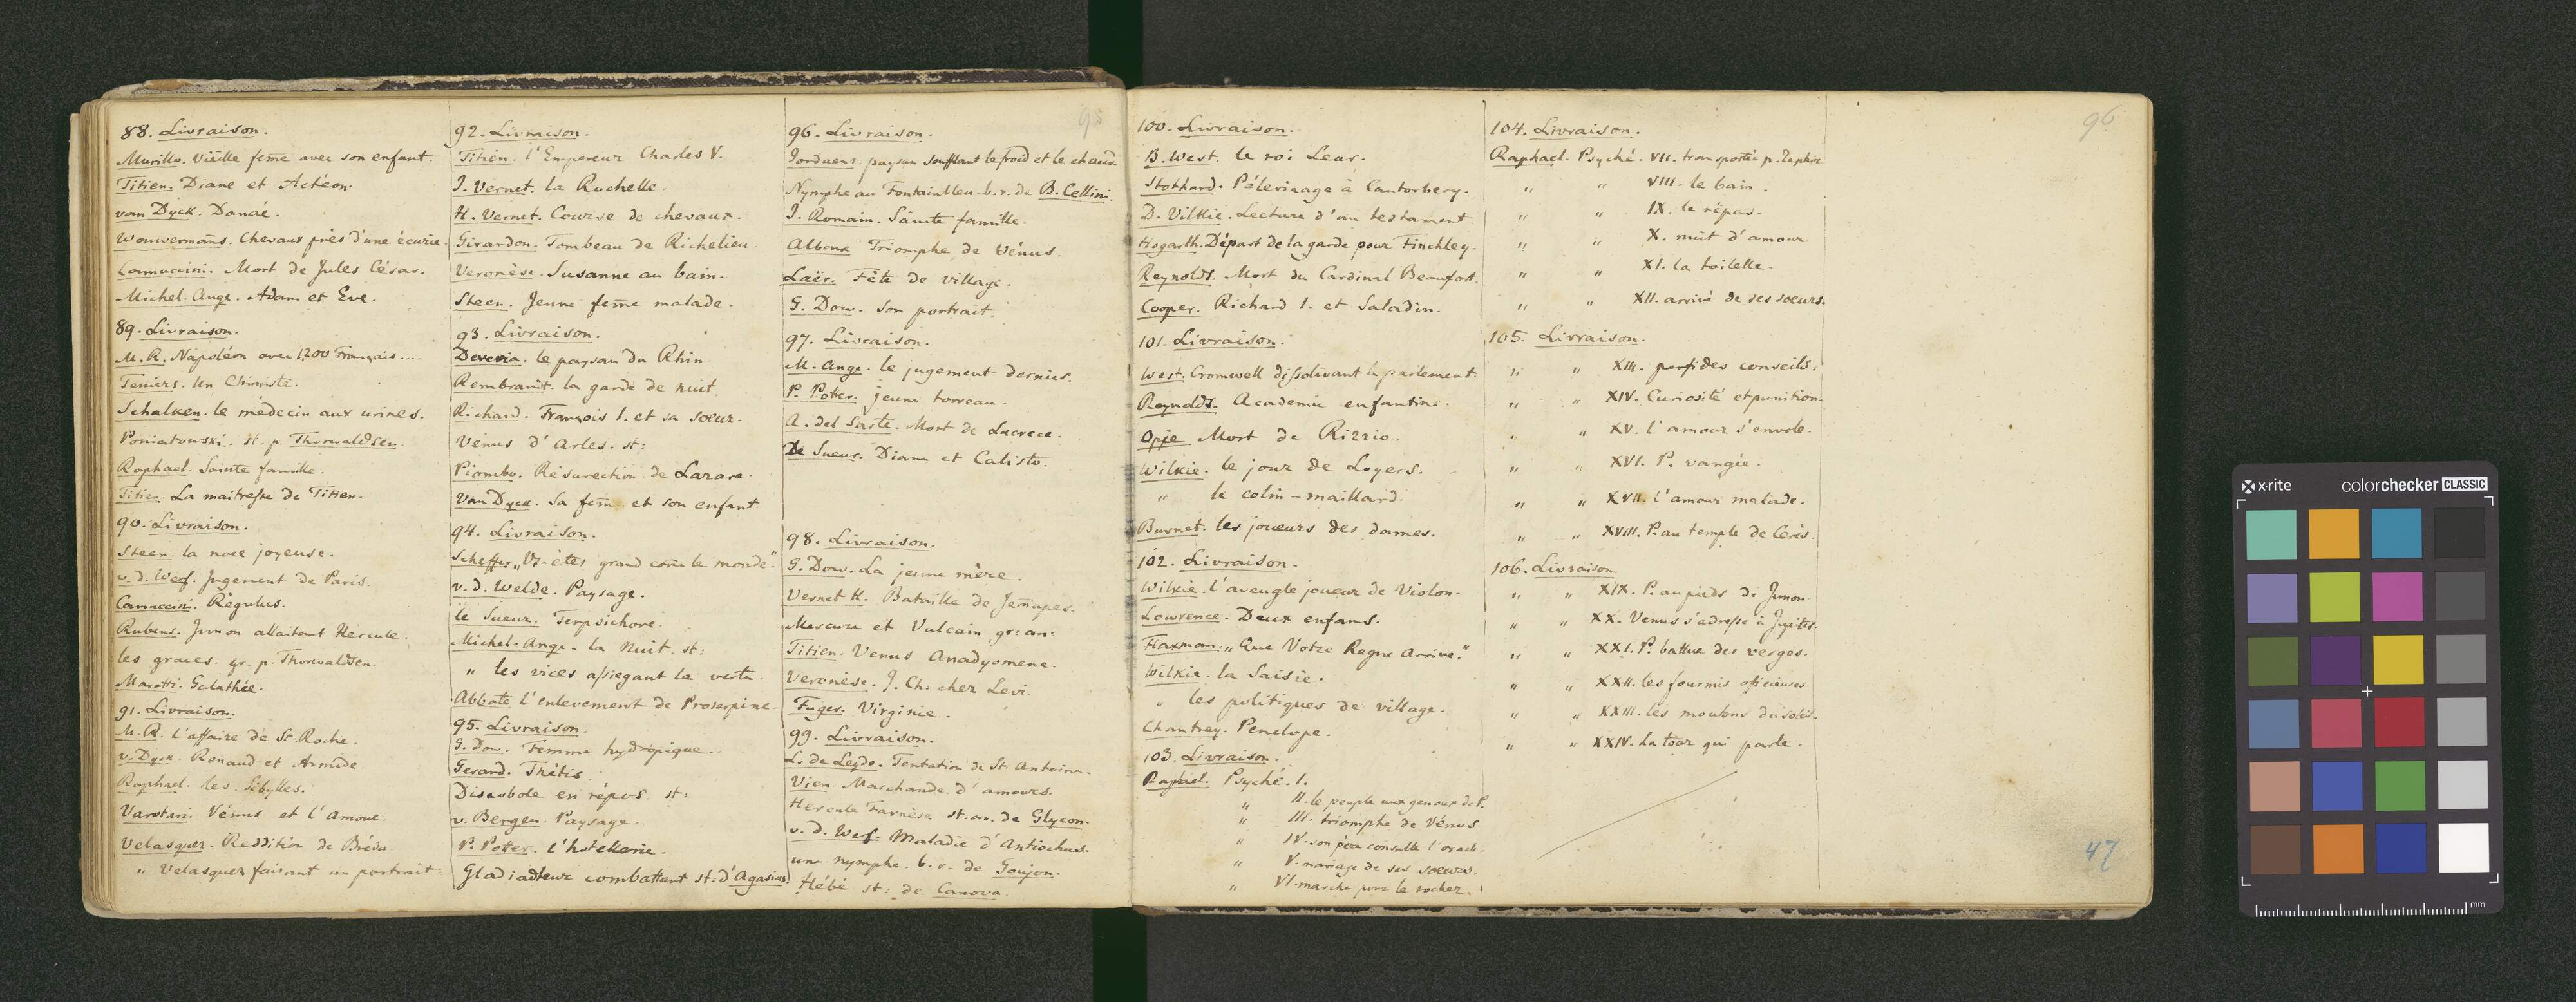 88. Livraison.
Murillo. Vieille fem̅e avec son enfant.
Titien. Diane et Actéon.
van Dyck. Danaé.
Wouwerman̅s. Chevaux près d'une écurie.
Cammuccini. Mort de Jules César.
Michel-Ange. Adam et Eve.
89. Livraison.
M. R. Napoléon avec 1,200 Français....
Teniers. Un Chimiste.
Schalken. le médecin aux urines.
Poniatowski. st. p. Thorwaldsen.
Raphael. Sainte famille.
Titien. La maitresse de Titien.
90. Livraison.
Steen. la noce joyeuse.
v. d. Werf. Jugement de Paris.
Camuccini. Régulus.
Rubens. Junon allaitant Hercule.
les graces. gr. p. Thorwaldsen.
Maratti. Galathée.
91. Livraison.
M. R. L'affaire de St. Roche.
v. Dyck. Renaud et Armide.
Raphael. les Sibylles.
Varotari. Vénus et l'Amour.
Velasquez. Reddition de Bréda.
" Velasquez faisant un portrait.
92. Livraison.
Titien. l'Empereur Charles V.
J. Vernet. la Rochelle.
H. Vernet. Course de chevaux.
Girardon. Tombeau de Richelieu.
Veronèse. Susanne au bain.
Steen. Jeune fem̅e malade.
93. Livraison.
Deveria. le paysan du Rhin.
Rembrandt. la garde de nuit.
Richard. François I. et sa soeur.
Vénus d'Arles. st:
Piombo. Résurection de Lazare.
Van Dyck. Sa fem̅e et son enfant.
94. Livraison.
Scheffer „Vs êtes grand com̅e le monde."
v. d. Welde. Paysage.
le Sueur. Terpsichore.
Michel-Ange. la Nuit. st:
" les vices assiegant la vertu.
Abbate l'enlevement de Proserpine.
95. Livraison.
G. Dow. Femme hydropique.
Gerard. Thétis.
Discobole en répos. st:
v. Bergen. Paysage.
P. Potter. l'hotellerie.
Gladiadteur combattant st: d'Agasias.
95
96. Livraison.
Jordaens. paysan soufflant le froid et le chaud.
Nymphe au Fontainbleu. b. r. de B. Cellini.
J. Romain. Sainte famille.
Albane Triomphe de Vénus.
Laër. Fête de village.
G. Dow. son portrait.
97. Livraison.
M. Ange. le jugement dernier.
P. Potter. jeune torreau.
A. del Sarte. Mort de Lucrece.
Le Sueur. Diane et Calisto.
98. Livraison.
G. Dow. La jeune mère.
Vernet H. Bataille de Jem̅apes.
Mercure et Vulcain gr: an:
Titien. Venus Anadyomene.
Veronèse. J. Ch: chez Levi.
Fuger. Virginie.
99. Livraison.
L. de Leyde. Tentation de St Antoine.
Vien. Marchande d'amours.
Hercule Farnèse st. an. de Glycon.
v. d. Werf. Maladie d'Antiochus.
une nymphe. b. r. de Goujon.
Hébé st: de Canova.
96
100. Livraison.
B. West. le roi Lear.
Stothard. Pélerinage à Cantorbery.
D. Vilkie. Lecture d'un testament.
Hogarth. Départ de la garde pour Finchley.
Reynolds. Mort du Cardinal Beaufort.
Cooper. Richard I. et Saladin.
101. Livraison.
West. Cromwell dissolivant le parlement.
Reynolds. Academie enfantine.
Opje Mort de Rizzio.
Wilkie. le jour de Loyers.
" le colin-maillard.
Burnet. les joueurs des dames.
102. Livraison.
Wilkie. l'aveugle joueur de Violon.
Lawrence. Deux enfans.
Flaxman. „Que Votre Regne Arrive."
Wilkie. la Saisie.
" les politiques de village.
Chantrey. Penelope.
103. Livraison.
Raphael. Psyché. I.
" II. le peuple aux genoux de P.
" III. triomphe de Vénus.
" IV. son père consulte l'oracle.
" V. mariage de ses soeurs.
" VI. marche pour le rocher.
104. Livraison.
Raphael. Psyché. VII. transportée p. Zephire
" " VIII. le bain.
" " IX. le répas.
" " X. nuit d'amour
" " XI. la toilette.
" " XII. arrivé de ses soeurs.
105. Livraison.
" " XIII. perfides conseils.
" " XIV. Curiosité et punition.
" " XV. l'amour s'envole.
" " XVI. P. vangée.
" " XVII. l'amour malade.
" " XVIII. P. au temple de Cerès.
106. Livraison.
" " XIX. P. au pieds de Junon
" " XX. Venus s'adresse à Jupiter.
" " XXI. P. battue des verges.
" " XXII. les fourmis oficieuses
" " XXIII. les moutons du soleil.
" " XXIV. La tour qui parle.
47
x·rite colorchecker CLASSIC
mm